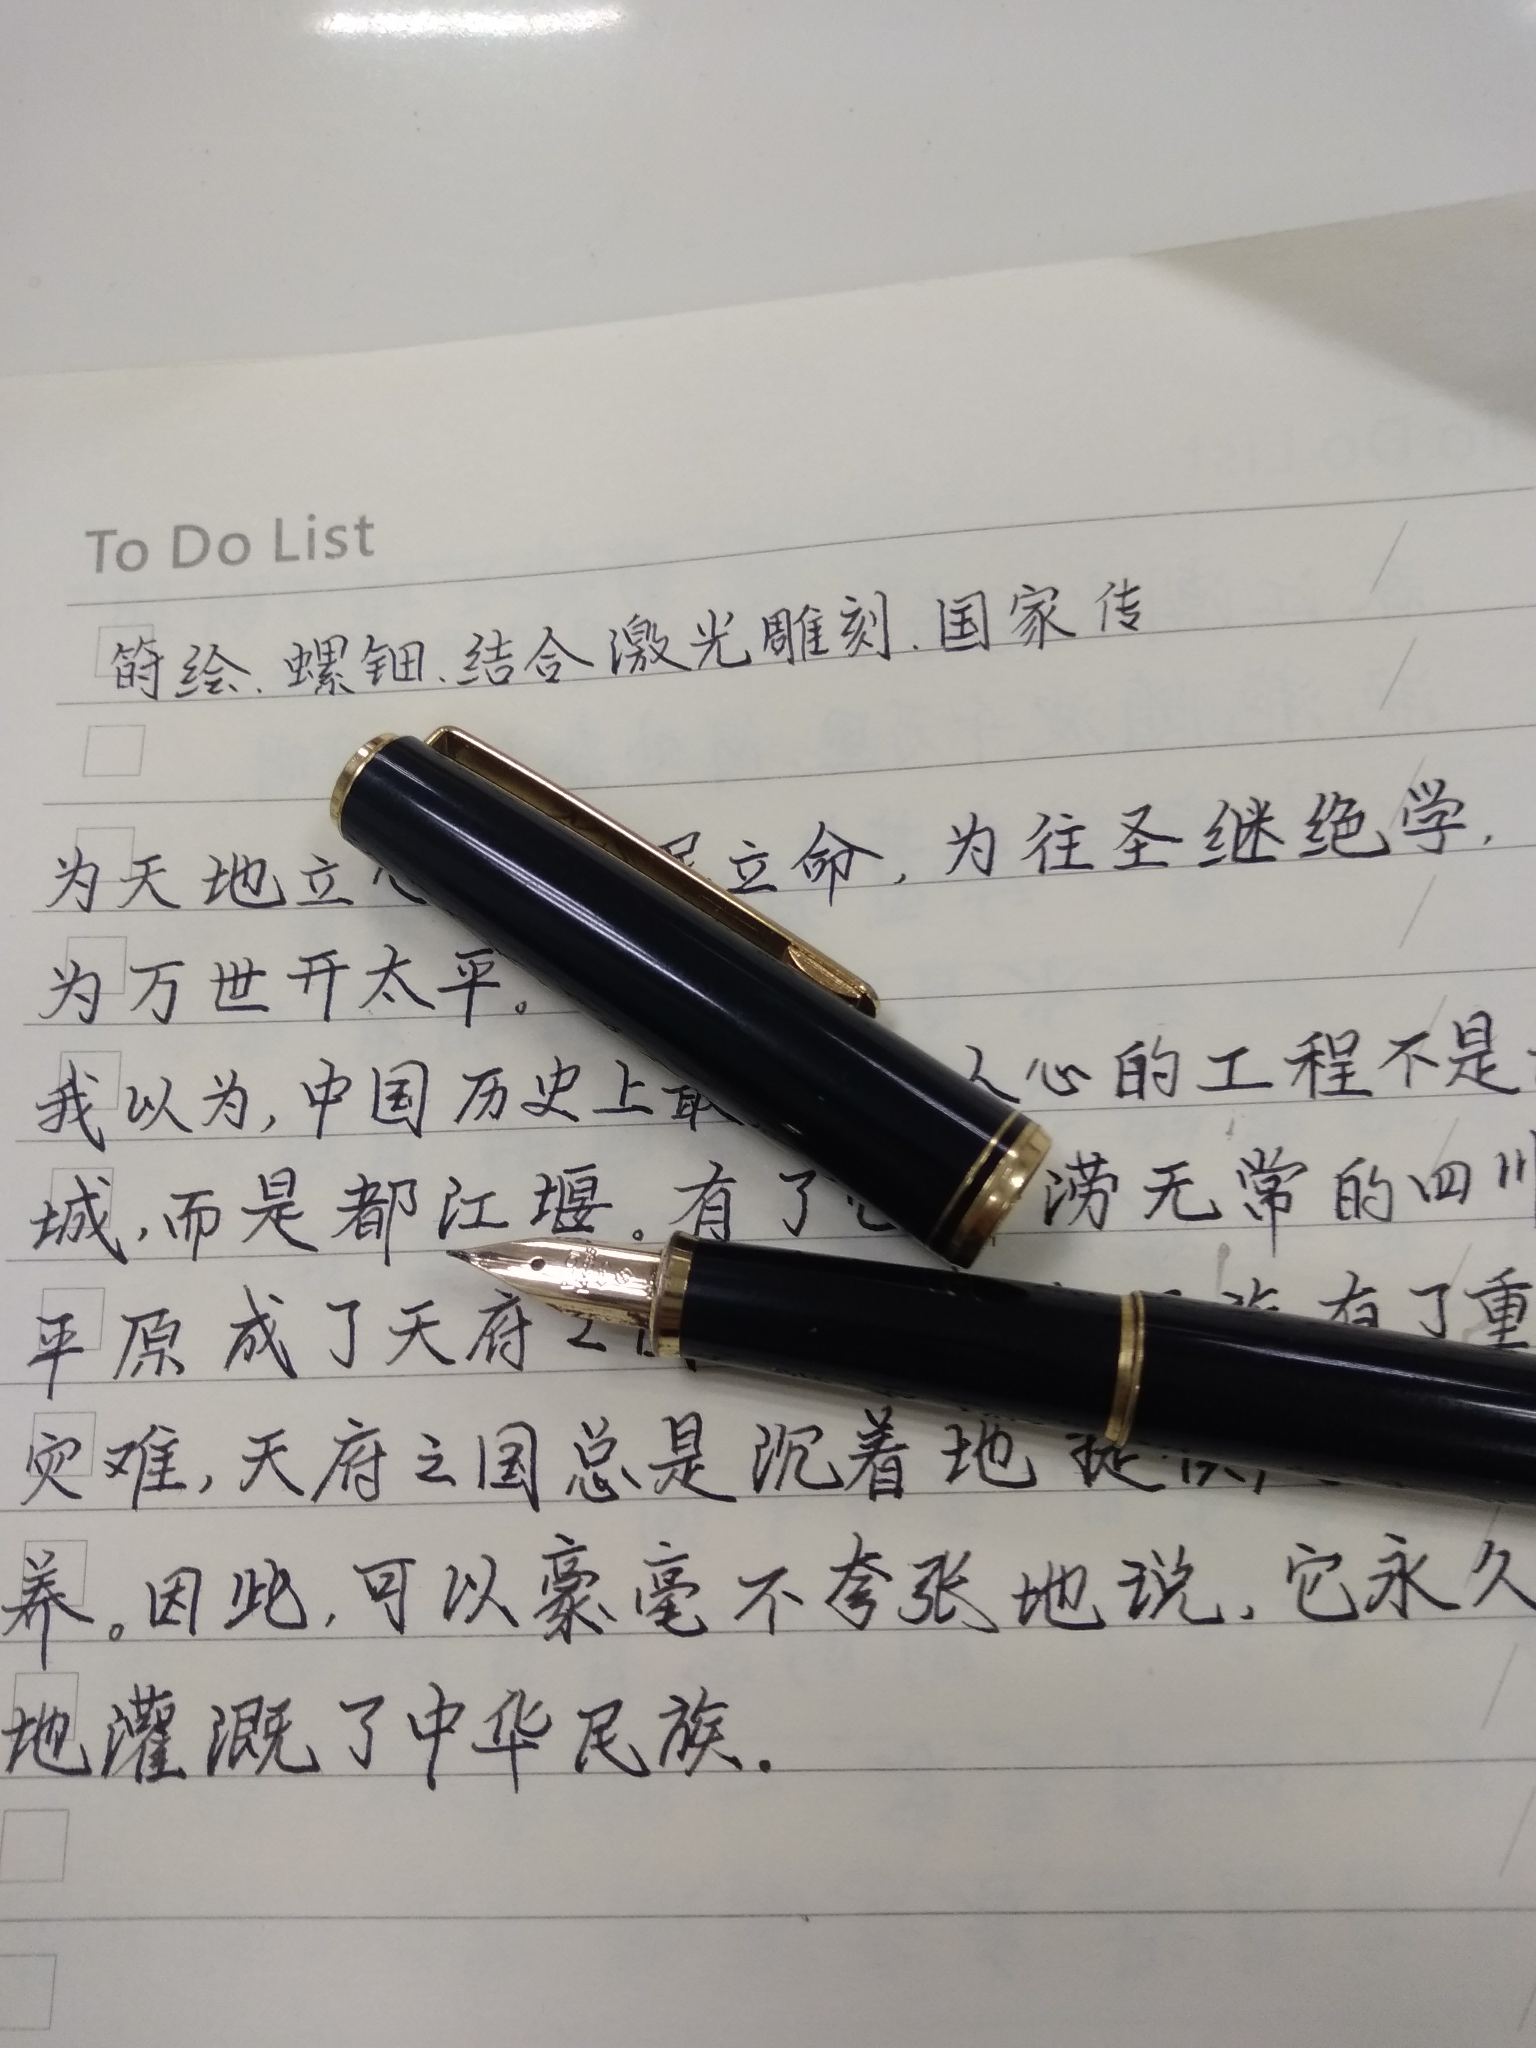 To Do List
莳绘、螺钿、结合激光雕刻、国家传
为天地立心 民立命，为往圣继绝学，
为万世开太平。
我以为，中国历史上最 人心的工程不是
城，而是都江堰。有了它 涝无常的四川
平原成了天府之国 有了重
灾难，天府之国总是沉着地提供
养。因此，可以豪毫不夸张地说，它永久
地灌溉了中华民族.